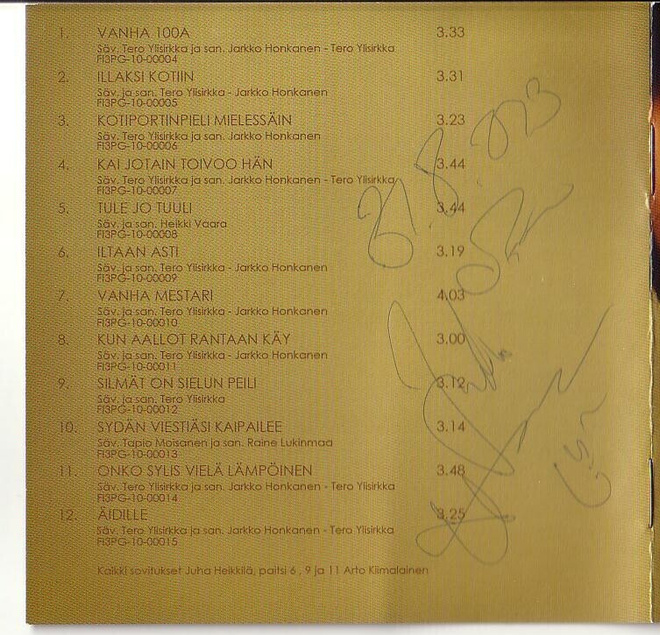 1. VANHA 100A 3.33
Säv. Tero Ylisirkka ja san. Jarkko Honkanen - Tero Ylisirkka
FI3PG-10-00004
2. ILLAKSI KOTIIN 3.31
Säv. ja san. Tero Ylisirkka - Jarkko Honkanen
FI3PG-10-00005
3. KOTIPORTINPIELI MIELESSÄIN 3.23
Säv. ja san. Tero Ylisirkka - Jarkko Honkanen
FI3PG-10-00006
4. KAI JOTAIN TOIVOO HÄN 3.44
Säv. Tero Ylisirkka ja san. Jarkko Honkanen - Tero Ylisirkka
FI3PG-10-00007
5. TULE JO TUULI 3.44
Säv. ja san. Heikki Vaara
FI3PG-10-00008
6. ILTAAN ASTI 3.19
Säv. ja san. Tero Ylisirkka - Jarkko Honkanen
FI3PG-10-00009
7. VANHA MESTARI 4.03
Säv. ja san. Tero Ylisirkka - Jarkko Honkanen
FI3PG-10-00010
8. KUN AALLOT RANTAAN KÄY 3.00
Säv. ja san. Tero Ylisirkka - Jarkko Honkanen
FI3PG-10-00011
9. SILMÄT ON SIELUN PEILI 3.12
Säv. ja san. Tero Ylisirkka
FI3PG-10-00012
10. SYDÄN VIESTIÄSI KAIPAILEE 3.14
Säv. Tapio Moisanen ja san. Raine Lukinmaa
FI3PG-10-00013
11. ONKO SYLIS VIELÄ LÄMPÖINEN 3.48
Säv. Tero Ylisirkka ja san. Jarkko Honkanen - Tero Ylisirkka
FI3PG-10-00014
12. ÄIDILLE 3.25
Säv. Tero Ylisirkka ja san. Jarkko Honkanen - Tero Ylisirkka
FI3PG-10-00015
Kaikki sovitukset Juha Heikkilä, paitsi 6 , 9 ja 11 Arto Kiimalainen